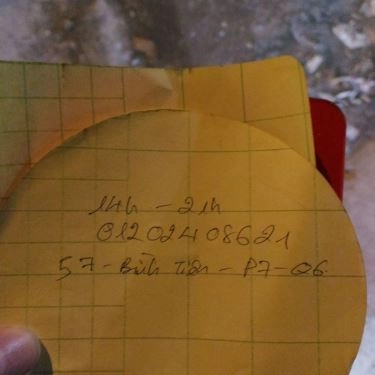 14h - 21h
01202408621
57 - Bình Tiên - P7 - Q6.